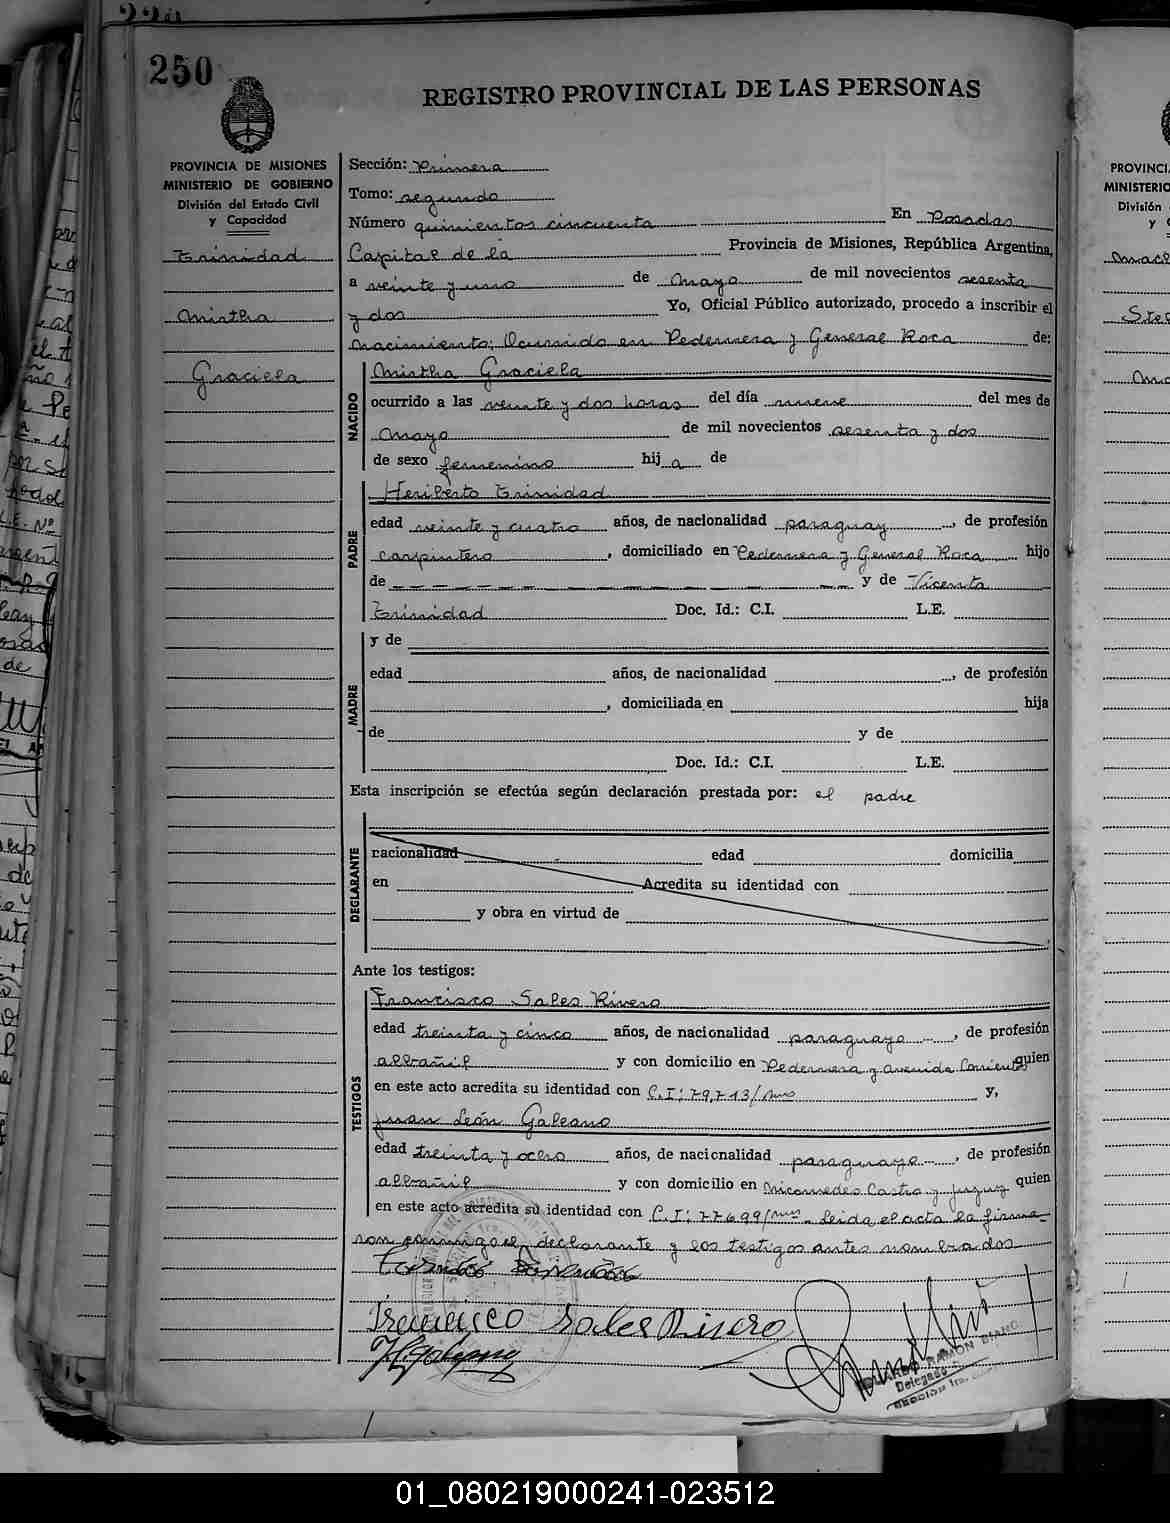 250
REGISTRO PROVINCIAL DE LAS PERSONAS
PROVINCIA DE MISIONES
MINISTERIO DE GOBIERNO
División del Estado Civil
y Capacidad
Trinidad
Mirtha
Graciela
Sección: Primera
Tomo: segundo
Número quinientos cincuenta En Posadas
Capital de la Provincia de Misiones, República Argentina,
a veinte y uno de Mayo de mil novecientos sesenta
y dos Yo, Oficial Público autorizado, procedo a inscribir el
nacimiento; Ocurrido en Pedernera y General Roca de:
NACIDO
Mirtha Graciela
ocurrido a las veinte y dos horas del día nueve del mes de
Mayo de mil novecientos sesenta y dos
de sexo femenino hij a de
PADRE
Heriberto Trinidad
edad veinte y cuatro años, de nacionalidad paraguay , de profesión
carpintero , domiciliado en Pedernera y General Roca hijo
de — — — — — — — — — — y de Vicenta
Trinidad Doc. Id.: C.I. L.E.
MADRE
y de
edad años, de nacionalidad , de profesión
, domiciliada en hija
de y de
Doc. Id.: C.I. L.E.
Esta inscripción se efectúa según declaración prestada por: el padre
DECLARANTE
nacionalidad edad domicilia
en Acredita su identidad con
y obra en virtud de
Ante los testigos:
TESTIGOS
Francisco Sales Rivero
edad treinta y cinco años, de nacionalidad paraguayo , de profesión
albañil y con domicilio en Pedernera y avenida Corrientes quien
en este acto acredita su identidad con C.I: 79,713/Mnes y,
Juan León Galeano
edad treinta y ocho años, de nacionalidad paraguayo , de profesión
albañil y con domicilio en Nicomedes Castro y Jujuy quien
en este acto acredita su identidad con C.I: 77699/Mnes - Leida el acta la firma-
ron conmigo el declarante y los testigos antes nombrados
Francisco Sales Rivero
RAMON BIANO
Delegado
SECCION 1ra.
PROVINCI
MINISTERIO
División
y
01_080219000241-023512